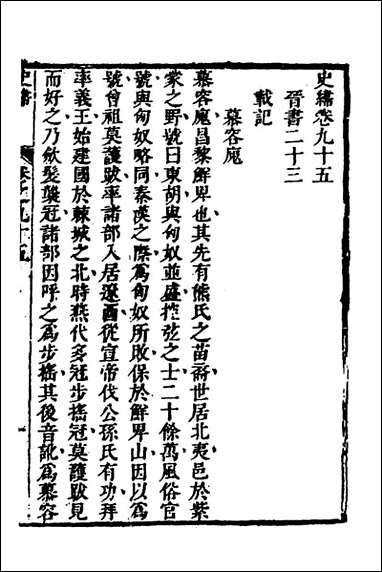 史緯卷九十五
晉書二十三
載記
慕容廆
慕容廆昌黎鮮卑也其先有熊氏之苗裔世居北夷邑於紫
蒙之野號曰東胡與匈奴並盛控弦之士二十餘萬風俗官
號與匈奴略同秦漢之際為匈奴所敗保於鮮卑山因以為
號曾祖莫護跋率諸部入居遼西從宣帝伐公孫氏有功拜
率義王始建國於棘城之北時燕代多冠步搖冠莫護跋見
而好之乃斂髮襲冠諸部因呼之為步搖其後音訛為慕容
史緯
卷之九十五